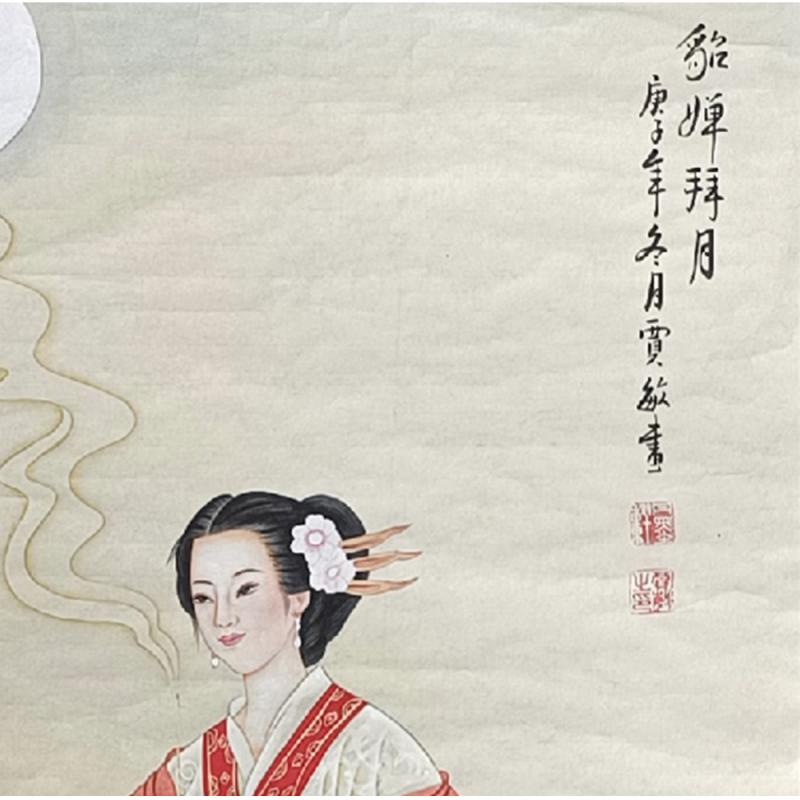 貂蝉拜月
庚子年冬月贾敏画